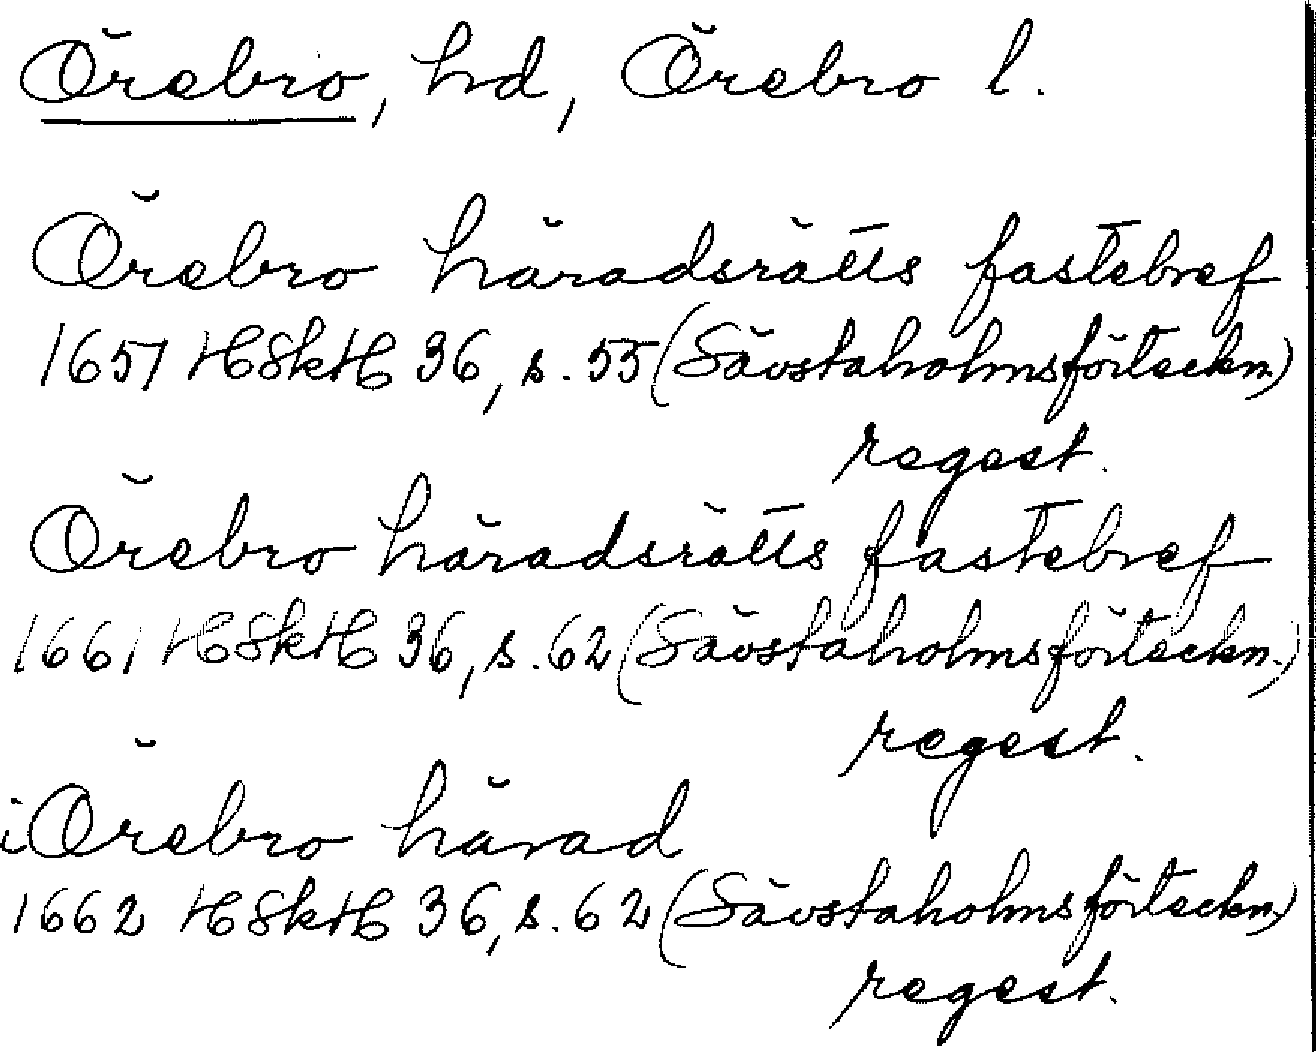 Örebro, hd, Örebro l.
Örebro häradsrätts fastebref
1657 HSkH 36, s. 55 (Sävstaholmsförteckn.)
regest.
Örebro häradsrätts fastebref
1661 HSkH 36, s. 62 (Sävstaholmsförteckn.)
regest.
i Örebro härad
1662 HSkH 36, s. 62 (Sävstaholmsförteckn.)
regest.